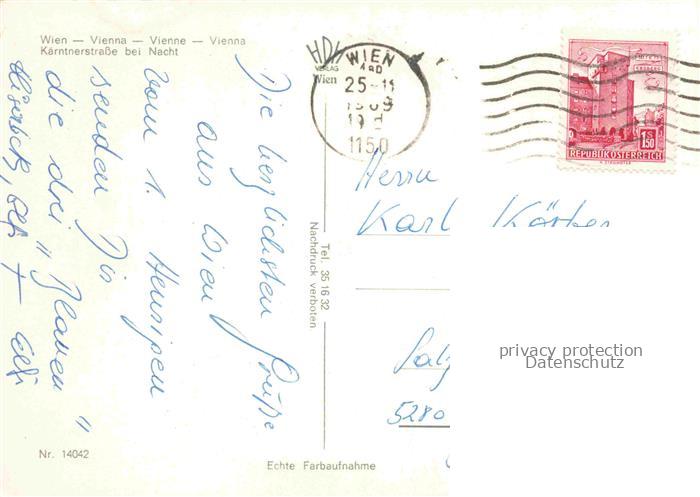 Wien — Vienna — Vienne — Vienna
Kärntnerstraße bei Nacht
HDH
VERLAG
Wien
WIEN
25-11
1150
1 S 50
REPUBLIK ÖSTERREICH
Die herzlichsten Grüße
aus Wien
vom 1. Heurigen
senden Dir
die drei "Blauen"
+ Elfi
Tel. 35 16 32
Nachdruck verboten
Herrn
Karl Körber
5280
privacy protection
Datenschutz
Nr. 14042
Echte Farbaufnahme